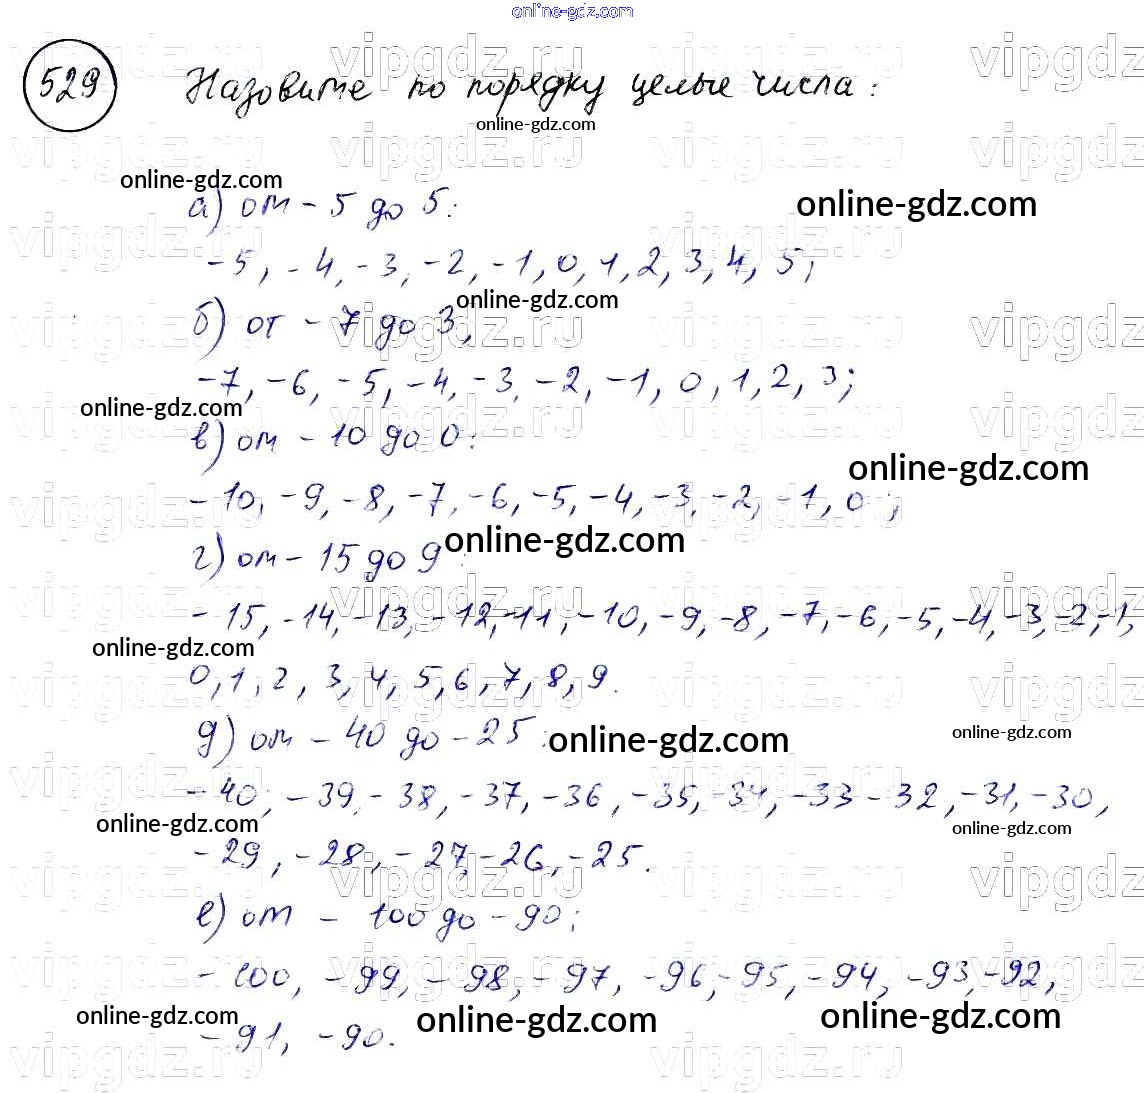 online-gdz.com
529 Назовите по порядку целые числа:
online-gdz.com
online-gdz.com
а) от -5 до 5:
online-gdz.com
-5, -4, -3, -2, -1, 0, 1, 2, 3, 4, 5;
online-gdz.com
б) от -7 до 3,
-7, -6, -5, -4, -3, -2, -1, 0, 1, 2, 3;
online-gdz.com
в) от -10 до 0:
online-gdz.com
-10, -9, -8, -7, -6, -5, -4, -3, -2, -1, 0;
online-gdz.com
г) от -15 до 9:
-15, -14, -13, -12, -11, -10, -9, -8, -7, -6, -5, -4, -3, -2, -1,
online-gdz.com
0, 1, 2, 3, 4, 5, 6, 7, 8, 9.
д) от -40 до -25:
online-gdz.com
online-gdz.com
-40, -39, -38, -37, -36, -35, -34, -33 -32, -31, -30,
online-gdz.com
online-gdz.com
-29, -28, -27, -26, -25.
е) от -100 до -90;
-100, -99, -98, -97, -96, -95, -94, -93, -92,
online-gdz.com
online-gdz.com
online-gdz.com
-91, -90.
vipgdz.ru